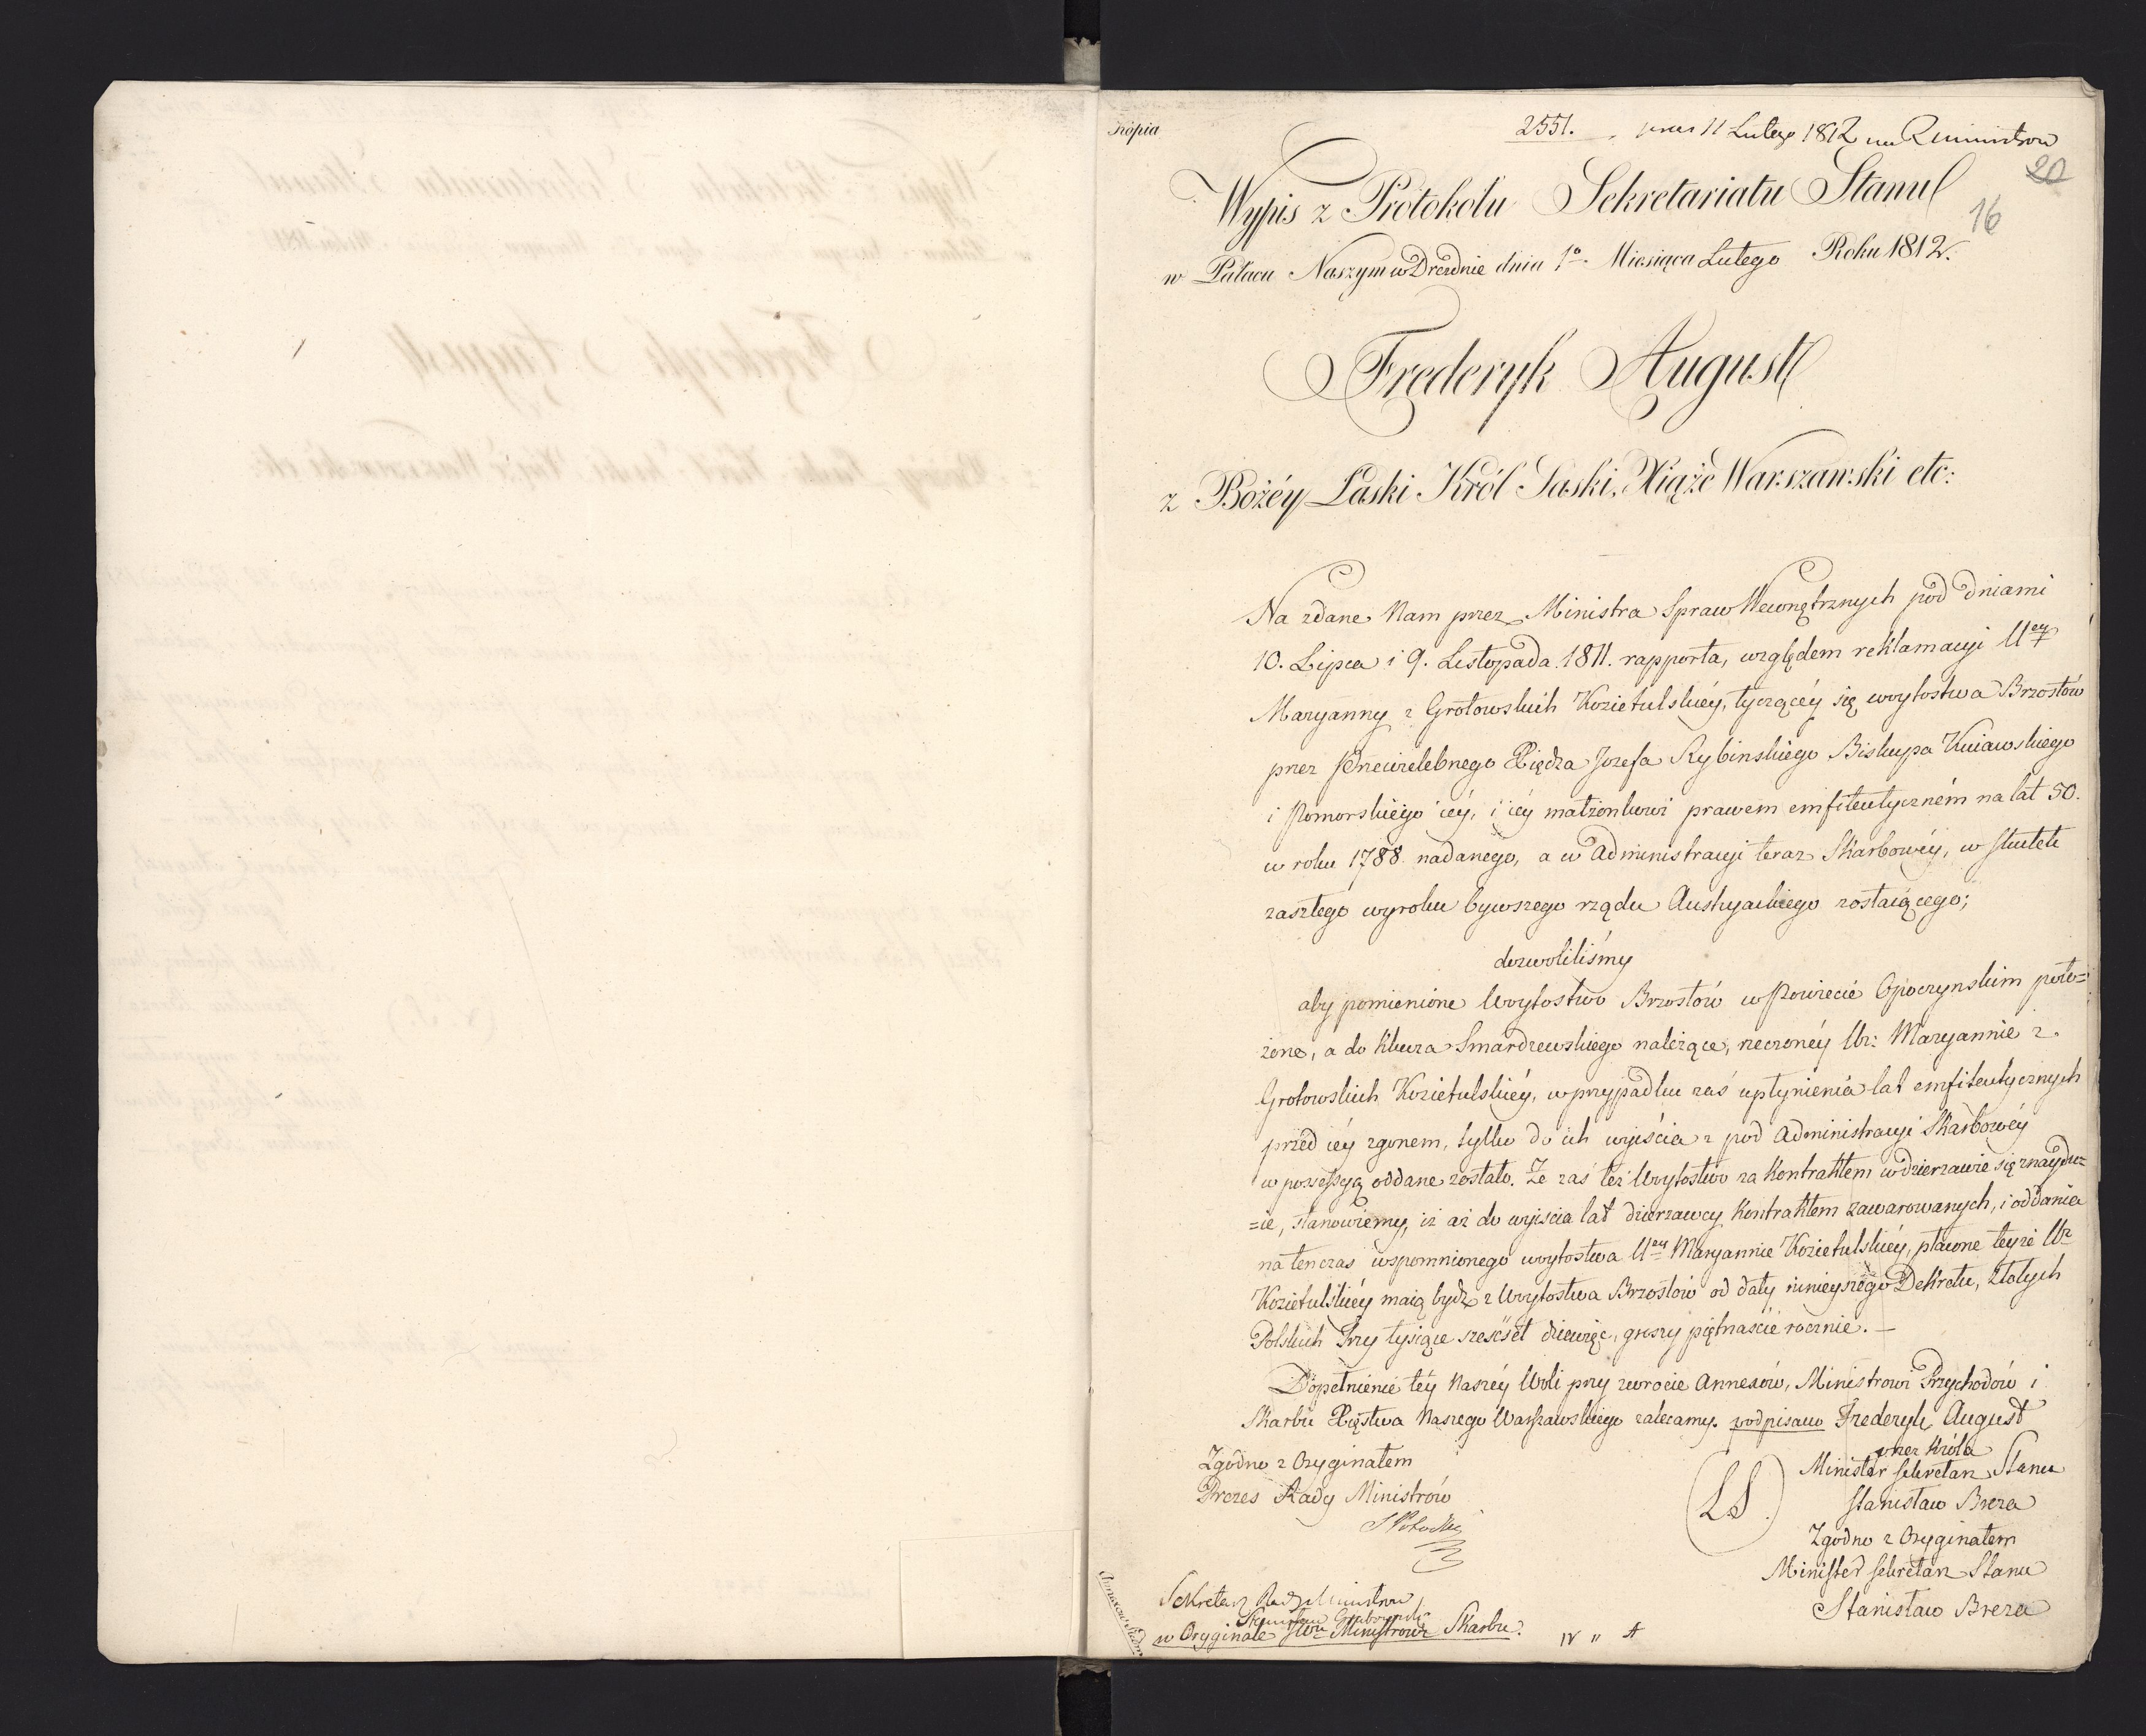 Kopia
2551. 11 Lutego 1812
20
16
Wypis z Protokółu Sekretariatu Stanu
w Pałacu Naszym w Dreznie dnia 1º Miesiąca Lutego Roku 1812.
Frederyk August
z Bożéy Łaski Król Saski, Xiążę Warszawski etc:
Na zdane Nam przez Ministra Spraw Wewnętrznych pod dniami
10. Lipca i 9. Listopada 1811. rapporta, względem reklamacyi Uey
Maryanny z Grotowskich Kozietulskiéy, tyczącéy się wóytostwa Brzostów
przez Przewielebnego Xiędza Jozefa Rybinskiego Biskupa Kuiawskiego
i Pomorskiego iéy, i iéy małżonkowi prawem emfiteutyczném na lat 50.
w roku 1788 nadanego, a w Administracyi teraz Skarbowéy, w skutek
zaszłego wyroku bywszego rządu Austryackiego zostaiącego;
dozwoliliśmy
aby pomienione Woytostwo Brzostów w Powiecie Opoczynskim poło=
żone, a do Klucza Smardzewskiego należące, rzeczonéy Ur: Maryannie z
Grotowskich Kozietulskiéy, w przypadku zaś upłynienia lat emfiteutycznych
przed iéy zgonem, tylko do ich wyiścia z pod Administracyi Skarbowéy
w possessyą oddane zostało. Że zaś też Woytostwo za Kontraktem w dzierzawie się znaydu=
=ie, stanowiemy, iż aż do wyiscia lat dzierzawcy Kontraktem zawarowanych, i oddania
na tenczas wspomnionego woytostwa Uey Maryannie Kozietulskiéy, płacone teyże Ur
Kozietulskiéy maią bydź z Woytostwa Brzostów od daty ninieyszego Dekretu, Złotych
Polskich Trzy tysiące sześćset dziewięc, groszy piętnaście rocznie. —
Dopełnienie téy Naszéy Woli przy zwrocie Annexów, Ministrowi Przychodów i
Skarbu Xięstwa Naszego Warszawskiego zalecamy. podpisano Frederyk August
przez Króla
Minister Sekretarz Stanu
Stanisław Breza
Zgodno z Oryginałem
Minister Sekretarz Stanu
Stanisław Breza
(LS.)
Zgodno z Oryginałem
Prezes Rady Ministrów
S Potocki
Sekretarz Rady Ministrów
Stanisław Grabowski
w Oryginale Ministrowi Skarbu.